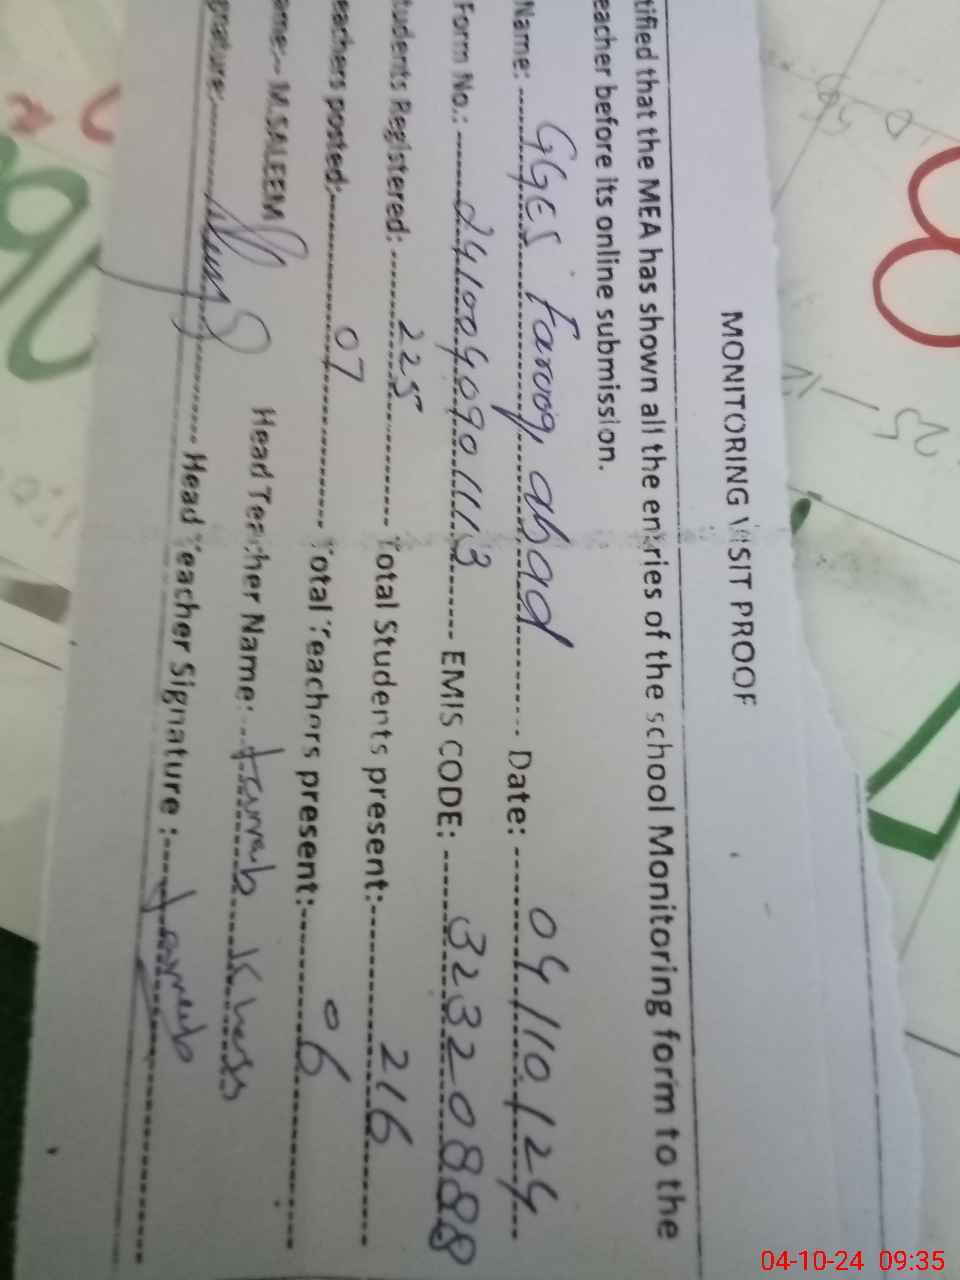 MONITORING VISIT PROOF
tified that the MEA has shown all the entries of the school Monitoring form to the
eacher before its online submission.
Name: GGES Farooq abad Date: 04/10/24
Form No.: EMIS CODE: 32320888
tudents Registered: 225 Total Students present: 216
eachers posted: 07 Total Teachers present: 06
ame:- M.SALEEM Head Teacher Name:
gnature: Head Teacher Signature :
04-10-24 09:35